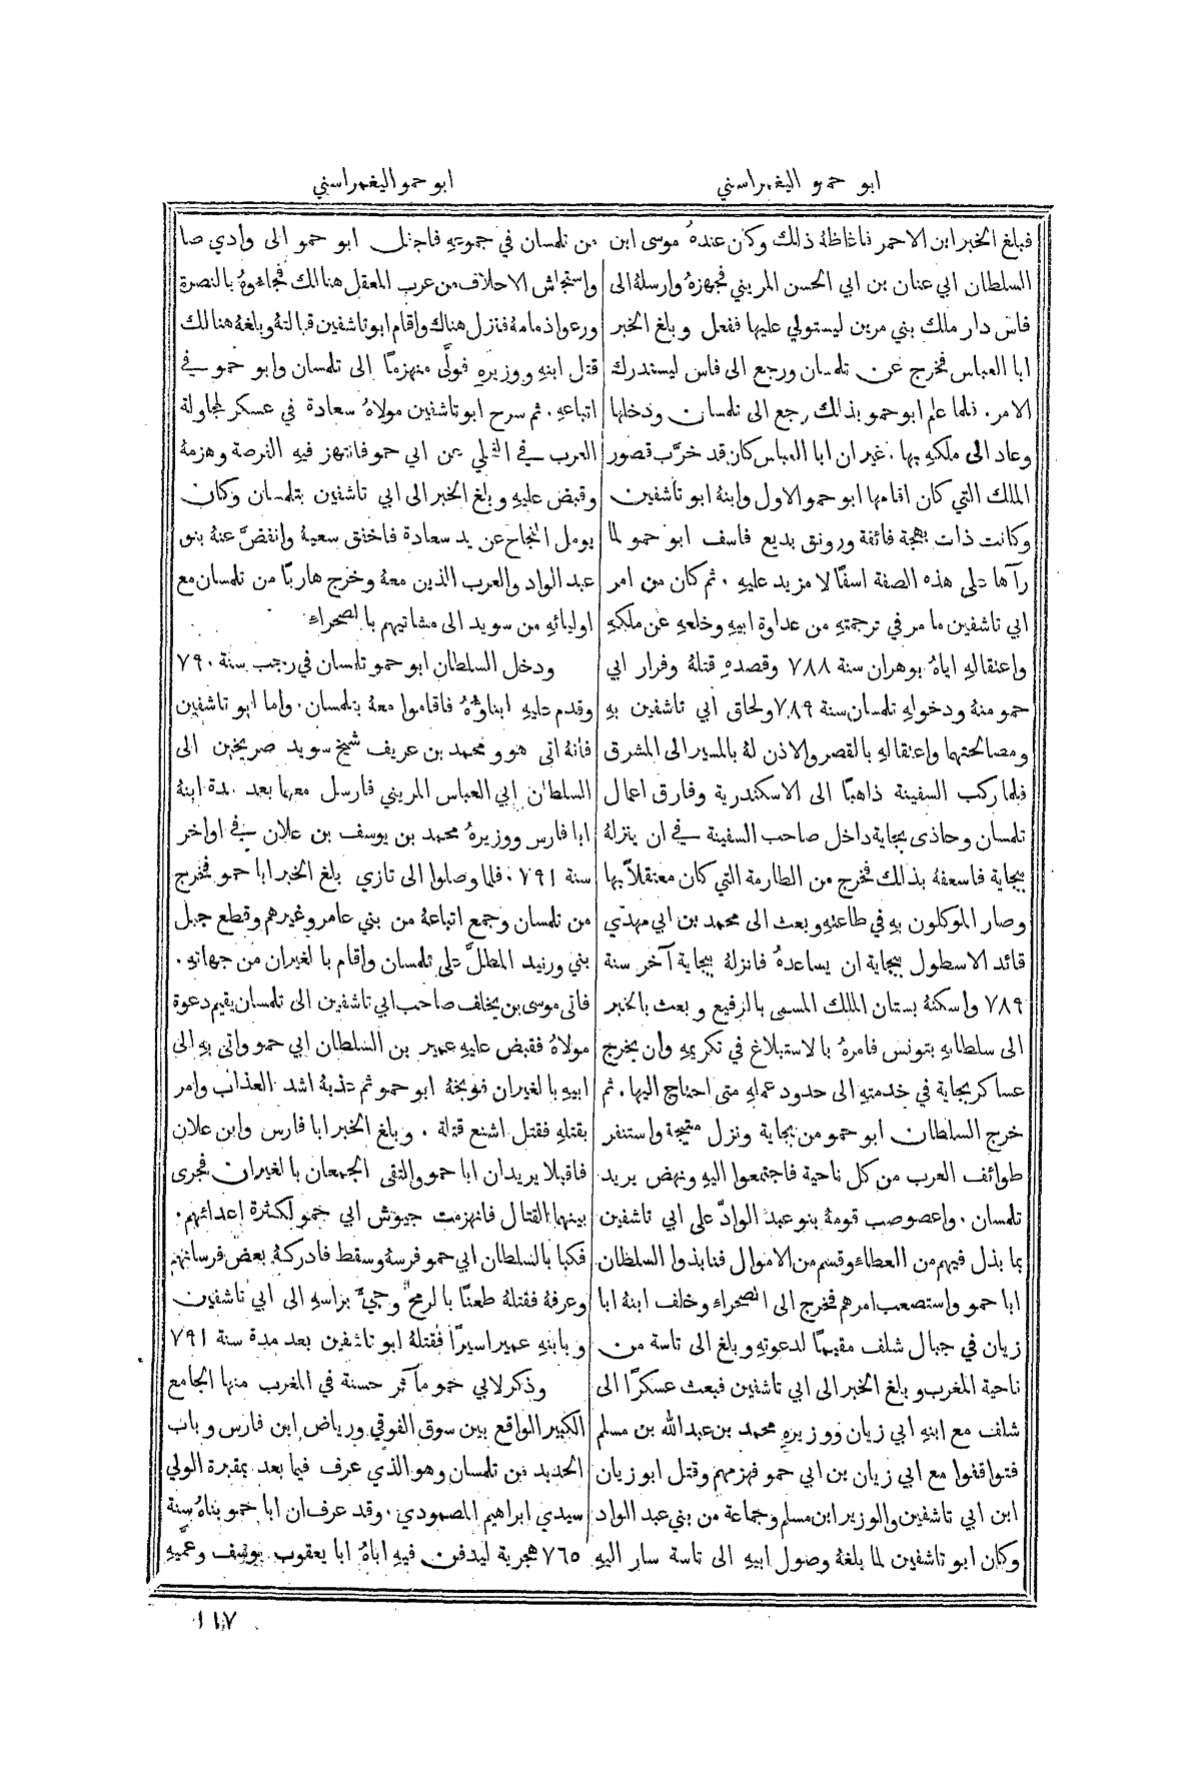 ابو حمو اليغمراسني
ابو حمو اليغمراسني
فبلغ الخبر ابن الاحمر فاغاظهُ ذلك وكان عندهُ موسى ابن
السلطان ابي عنان بن ابي الحسن المريني فجهزهُ وارسلهُ الى
فاس دار ملك بني مرين ليستولي عليها ففعل وبلغ الخبر
ابا العباس فخرج عن تلمسان ورجع الى فاس ليستدرك
الامر. فلما علم ابو حمو بذلك رجع الى تلمسان ودخلها
وعاد الى ملكهِ بها. غير ان ابا العباس كان قد خرَّب قصور
الملك التي كان اقامها ابو حمو الاول وابنهُ ابو تاشفين
وكانت ذات بهجة فائقة ورونق بديع فاسف ابو حمو لما
رآها على هذه الصفة اسفًا لا مزيد عليهِ. ثم كان من امر
ابي تاشفين ما مر في ترجمتهِ من عداوة ابيهِ وخلعهِ عن ملكهِ
واعتقالهِ اياهُ بوهران سنة ٧٨٨ وقصدهِ قتلهُ وفرار ابي
حمو منهُ ودخولهِ تلمسان سنة ٧٨٩ ولحاق ابي تاشفين بهِ
ومصالحتهما واعتقالهِ بالقصر والاذن لهُ بالمسير الى المشرق
فلما ركب السفينة ذاهبًا الى الاسكندرية وفارق اعمال
تلمسان وحاذى بجاية داخل صاحب السفينة في ان ينزلهُ
بجاية فاسعفهُ بذلك فخرج من الطارمة التي كان معتقلاً بها
وصار الموكلون بهِ في طاعتهِ وبعث الى محمد بن ابي مهدي
قائد الاسطول ببجاية ان يساعدهُ فانزلهُ ببجاية آخر سنة
٧٨٩ واسكنهُ بستان الملك المسمى بالرفيع وبعث بالخبر
الى سلطانهِ بتونس فامرهُ بالاستبلاغ في تكريمهِ وان يخرج
عساكر بجاية في خدمتهِ الى حدود عملهِ متى احتاج اليها. ثم
خرج السلطان ابو حمو من بجاية ونزل متيجة واستنفر
طوائف العرب من كل ناحية فاجتمعوا اليهِ ونهض يريد
تلمسان. واعصوصب قومهُ بنو عبد الوادّ على ابي تاشفين
بما بذل فيهم من العطاء وقسم من الاموال فنابذوا السلطان
ابا حمو واستصعب امرهم فخرج الى الصحراء وخلف ابنهُ ابا
زيان في جبال شلف مقيمًا لدعوتهِ وبلغ الى تاسة من
ناحية المغرب وبلغ الخبر الى ابي تاشفين فبعث عسكرًا الى
شلف مع ابنهِ ابي زيان ووزيرهِ محمد بن عبد الله بن مسلم
فتواقفوا مع ابي زيان بن ابي حمو فهزمهم وقتل ابو زيان
ابن ابي تاشفين والوزير ابن مسلم وجماعة من بني عبد الواد
وكان ابو تاشفين لما بلغهُ وصول ابيهِ الى تاسة سار اليهِ
من تلمسان في جموعهِ فاجفل ابو حمو الى وادي صا
واستجاش الاحلاف من عرب المعقل هنالك فجاءوهُ بالنصرة
ورعوا ذمامهُ فنزل هناك واقام ابو تاشفين قبالتهُ وبلغهُ هنالك
قتل ابنهِ ووزيرهِ فولَّى منهزمًا الى تلمسان وابو حمو في
اتباعهِ. ثم سرح ابو تاشفين مولاهُ سعادة في عسكر لمحاولة
العرب في التخلي عن ابي حمو فانتهز فيهِ الفرصة وهزمهُ
وقبض عليهِ وبلغ الخبر الى ابي تاشفين بتلمسان وكان
يومل النجاح عن يد سعادة فاخفق سعيهُ وانفضَّ عنهُ بنو
عبد الواد والعرب الذين معهُ وخرج هاربًا من تلمسان مع
اوليائهِ من سويد الى مشاتيهم بالصحراء
ودخل السلطان ابو حمو تلمسان في رجب سنة ٧٩٠
وقدم عليهِ ابناؤهُ فاقاموا معهُ بتلمسان. واما ابو تاشفين
فانهُ اتى هو ومحمد بن عريف شيخ سويد صريخين الى
السلطان ابي العباس المريني فارسل معهما بعد مدة ابنهُ
ابا فارس ووزيرهُ محمد بن يوسف بن علان في اواخر
سنة ٧٩١. فلما وصلوا الى تازي بلغ الخبر ابا حمو فخرج
من تلمسان وجمع اتباعهُ من بني عامر وغيرهم وقطع جبل
بني ورنيد المطلَّ على تلمسان واقام بالغيران من جهاتهِ.
فاتى موسى بن يخلف صاحب ابي تاشفين الى تلمسان يقيم دعوة
مولاهُ فقبض عليهِ عمير بن السلطان ابي حمو واتى بهِ الى
ابيهِ بالغيران فوبخهُ ابو حمو ثم عذبهُ اشد العذاب وامر
بقتلهِ فقتل اشنع قتلة. وبلغ الخبر ابا فارس وابن علان
فاقبلا يريدان ابا حمو والتقى الجمعان بالغيران فجرى
بينهما القتال فانهزمت جيوش ابي حمو لكثرة اعدائهم.
فكبا بالسلطان ابي حمو فرسهُ وسقط فادركهُ بعض فرسانهم
وعرفهُ فقتلهُ طعنًا بالرمح وجيءَ براسهِ الى ابي تاشفين
وبابنهِ عمير اسيرًا فقتلهُ ابو تاشفين بعد مدة سنة ٧٩١
وذكر لابي حمو مآثر حسنة في المغرب منها الجامع
الكبير الواقع بين سوق الفوقي ورياض ابن فارس وباب
الحديد من تلمسان وهو الذي عرف فيما بعد بمقبرة الولي
سيدي ابراهيم المصمودي. وقد عرف ان ابا حمو بناهُ سنة
٧٦٥ هجرية ليدفن فيهِ اباهُ ابا يعقوب يوسف وعمَّيهِ
١١٧